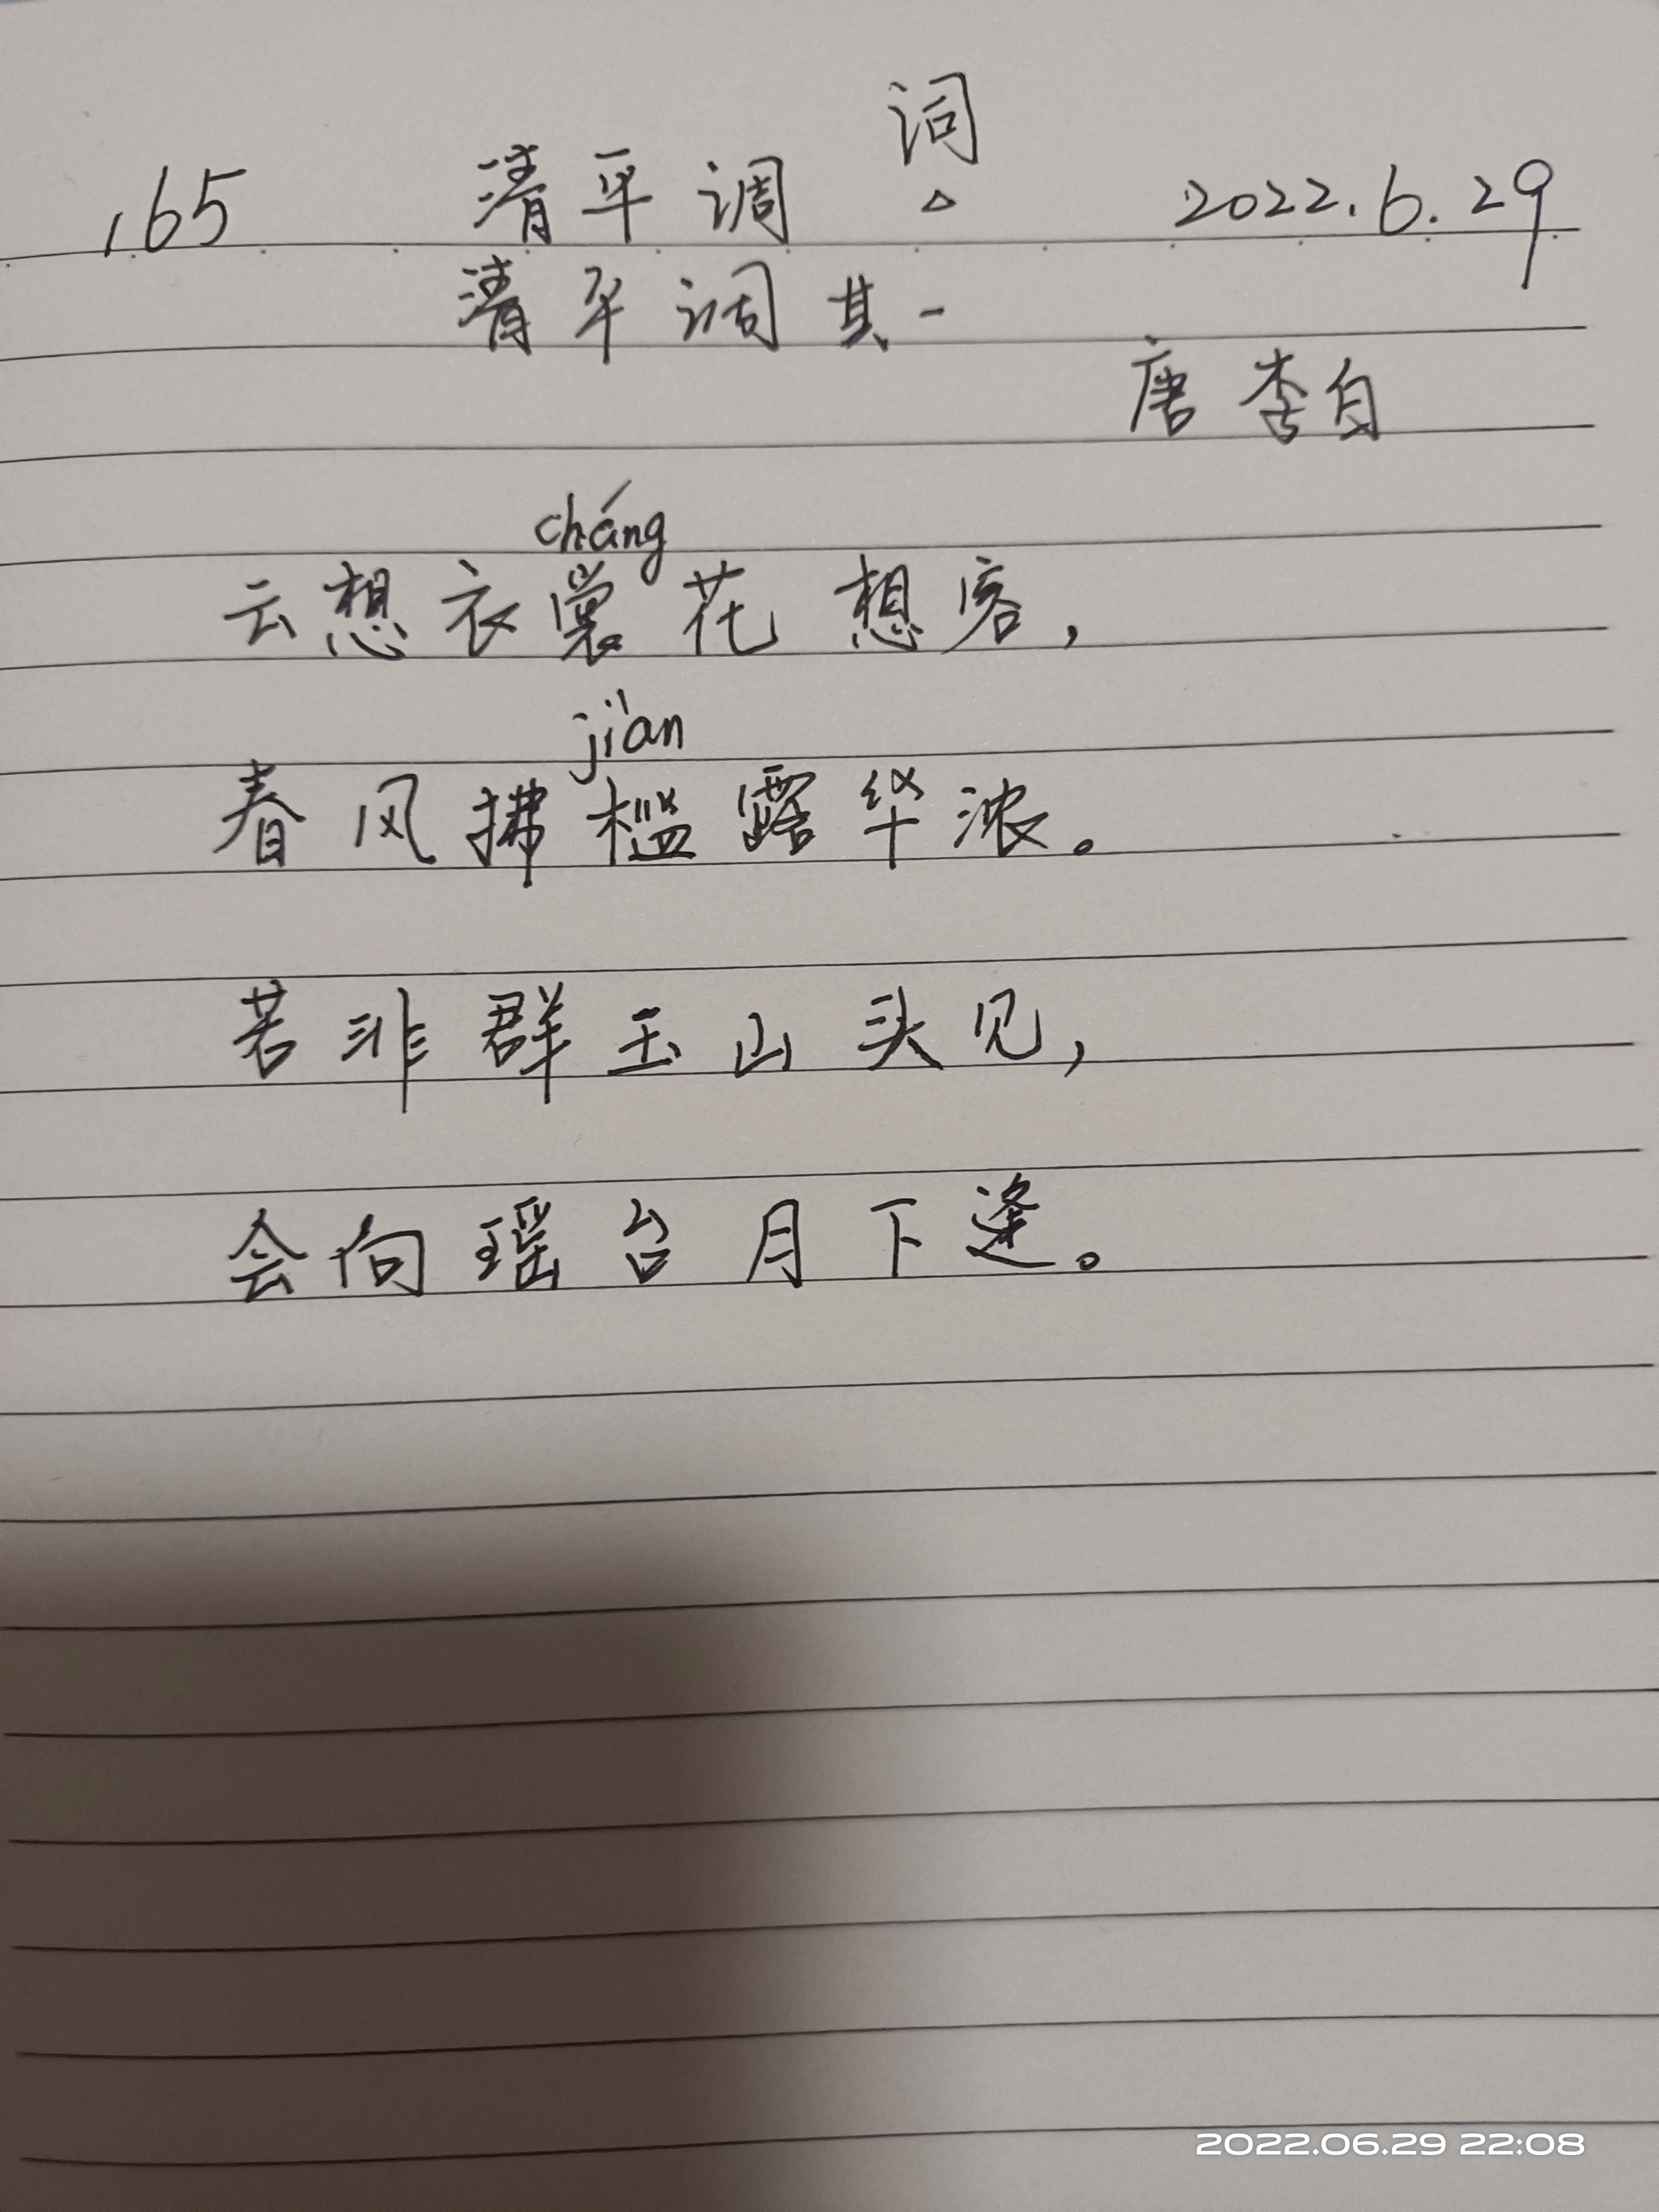 词
165 清平调 △ 2022.6.29
清平调其一
唐 李白
cháng
云想衣裳花想容，
jiàn
春风拂槛露华浓。
若非群玉山头见，
会向瑶台月下逢。
2022.06.29 22:08